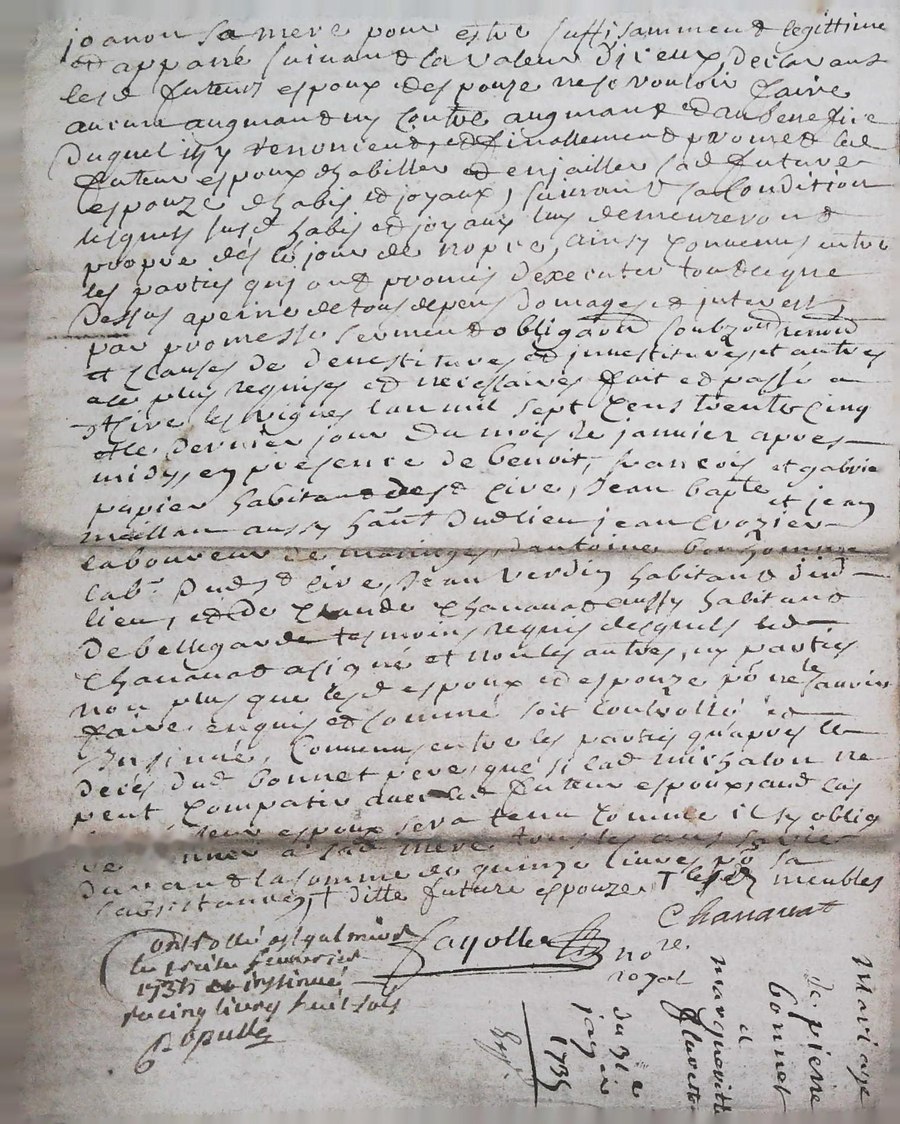 joanon sa mere pour estre suffisammend legittime
et appané suivand la valeur diceux, declarans
lesd futeurs espoux et espouze nese vouloir faire
aucune augmand ny contre augmand d au benefice
duquel ils y renoncend, et finallemend promet led
futeur espoux d habiller et enjailler sad future
espouze d habis et joyaux, suivand sa Condition
lesquels susd habis et joyaux luy demeureront
propre dés le jour de nopce, ainsy Convenus entre
les parties qui ond promis dexecuter toud ce que
dessus a peine de tous depens domages et interest,
par promesse sermend obligaon soubz on renon
et Clauses de devestitures et investitures, et autres
a ce plus requises et necessaires fait et passé a
Cive les vignes l an mil sept Cens trente Cinq
et le dernier jour du mois de janvier apres
midy, en présence de benoit, francois et gabrie
papier habitand dud Cive, Jean bapte et jean
meillan aussy hant dudlieu jean Crozier
laboureur de maringes, d antoine bonhomme
labr dud Cive, Jean verdiy habitand dud
lieu, et de Claude Chanavat aussy habitand
de bellegarde tesmoins requis desquels led
Chanavat a signé et non les autres, ny parties
non plus que lesd espoux et espouze pó ne scavoir
faire enquis et sommé soit Controllé et
Insinué, Convenu entre les parties qu apres le
deces dud bonnet pere, que si lad michalon ne
peut Compatir avec led futeur espoux, aud cas
espoux sera tenu Comme il sy oblig
a sad mere tous les ans
durand la somme de quinze livres pó sa
subsistance, ditte future espouze, meubles
Chanavat
fayolle nore royal
Controllé a st galmier
le fevrier
1735 et insinué
r cinq livres huit sols
Popullé
Mariage
de pierre
bonnet
et
marguerite
flavet
du 31e
janvier
1735